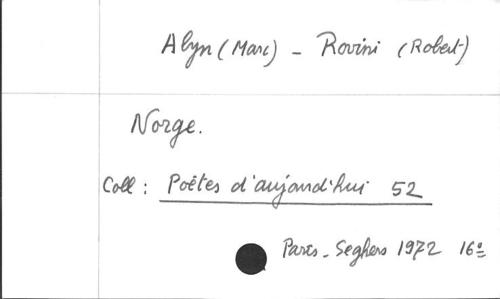 Alyn (Marc) - Rovini (Robert)
Norge.
Coll : Poètes d'aujourd'hui 52
Paris - Seghers 1972 16º